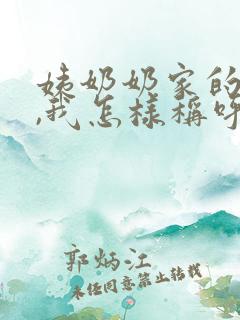 姨奶奶家的
,我怎様稱呼
郭炳江
未经同意禁止转载